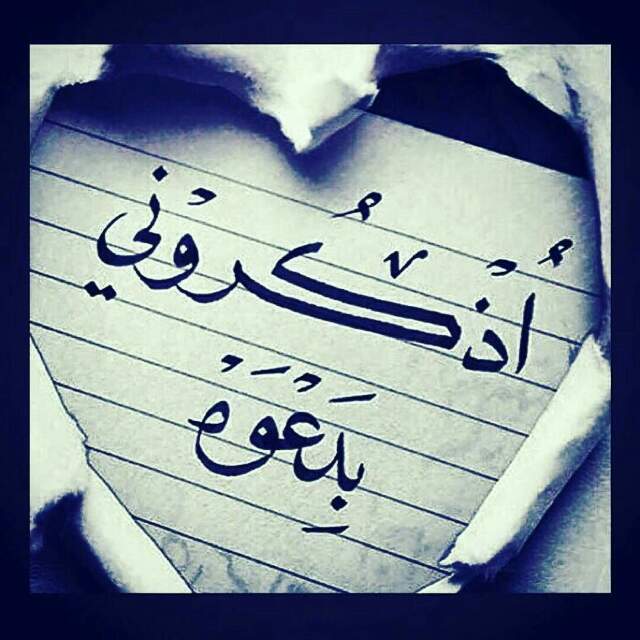 اُذْكُروْني
بِدَعْوَهْ